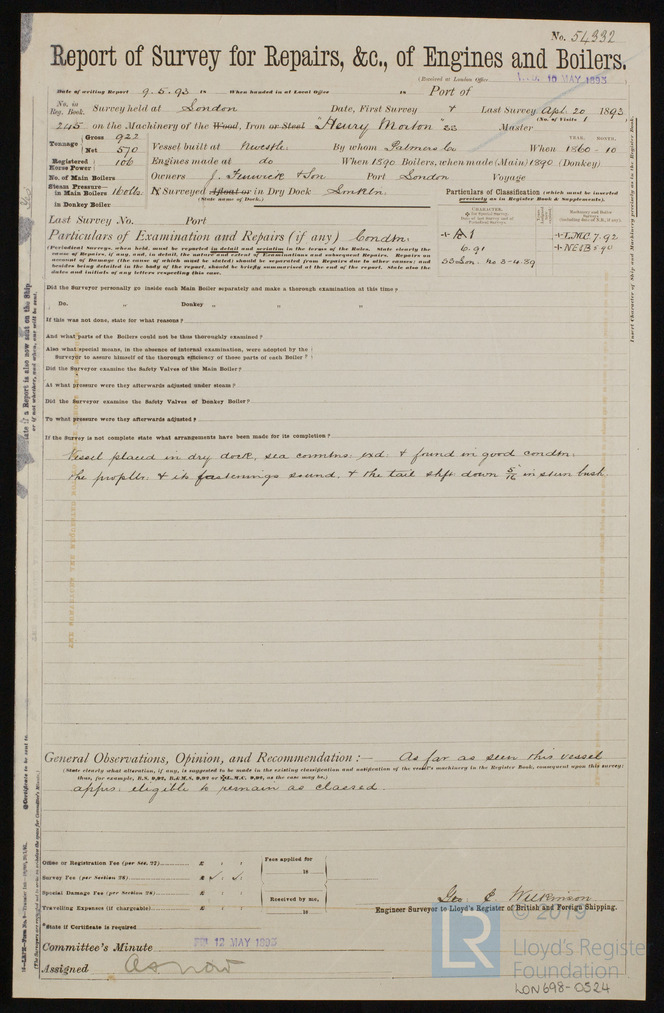 No. 54332
Report of Survey for Repairs, &c., of Engines and Boilers.
(Received at London Office 10 MAY 1893)
Date of writing Report 9.5.93 When handed in at Local Office Port of
No. in Reg. Book. Survey held at London Date, First Survey & Last Survey Apl. 20 1893
(No. of Visits 1)
245 on the Machinery of the Wood, Iron or Steel "Henry Morton" ss Master
Tonnage Gross 922 Net 570 Vessel built at Nwcstle By whom Palmers Co When 1860-10
YEAR. MONTH.
Registered Horse Power 106 Engines made at do When 1890 Boilers, when made (Main) 1890 (Donkey)
No. of Main Boilers Owners J. Fenwick & Son Port London Voyage
Steam Pressure in Main Boilers 160 lbs. If Surveyed Afloat or in Dry Dock
(State name of Dock.)
in Donkey Boiler
Particulars of Classification (which must be inserted precisely as in Register Book & Supplements).
Last Survey No. Port
CHARACTER.
+ A1
6.91
SS Lon. No 3-4.89
+ LMC 7.92
+ NE&B 5 90
Particulars of Examination and Repairs (if any) Condtn:
(Periodical Surveys, when held, must be reported in detail and seriatim in the terms of the Rules. State clearly the
cause of Repairs, if any, and, in detail, the nature and extent of Examinations and subsequent Repairs. Repairs on
account of Damage (the cause of which must be stated) should be separated from Repairs due to other causes; and
besides being detailed in the body of the report, should be briefly summarised at the end of the report. State also the
dates and initials of any letters respecting this case.
Did the Surveyor personally go inside each Main Boiler separately and make a thorough examination at this time?
Do. " Donkey " " "
If this was not done, state for what reasons?
And what parts of the Boilers could not be thus thoroughly examined?
Also what special means, in the absence of internal examination, were adopted by the
Surveyor to assure himself of the thorough efficiency of those parts of each Boiler?
Did the Surveyor examine the Safety Valves of the Main Boiler?
At what pressure were they afterwards adjusted under steam?
Did the Surveyor examine the Safety Valves of Donkey Boiler?
To what pressure were they afterwards adjusted?
If the Survey is not complete state what arrangements have been made for its completion?
Vessel placed in dry dock, sea conntns: exd: & found in good condtn:
the propllr: & its fastenings sound, & the tail shft: down 5/16" in stern bush.
General Observations, Opinion, and Recommendation:— As far as seen this vessel
(State clearly what alteration, if any, is suggested to be made in the existing classification and notification of the vessel's machinery in the Register Book, consequent upon this survey;
thus, for example, B.S. 9,92, B.&M.S. 9,92 or +L.M.C. 9,92, as the case may be.)
apprs: eligible to remain as classed.
Office or Registration Fee (per Sec. 27) £ : :
Fees applied for
18
Survey Fee (per Section 28) £ : :
Special Damage Fee (per Section 28) £ : :
Received by me,
18
Travelling Expenses (if chargeable) £ : :
Geo E Wilkinson
Engineer Surveyor to Lloyd's Register of British and Foreign Shipping.
*State if Certificate is required
Committee's Minute FRI 12 MAY 1893
Assigned As now
© 2019
LR
Lloyd's Register
Foundation
LON698-0524